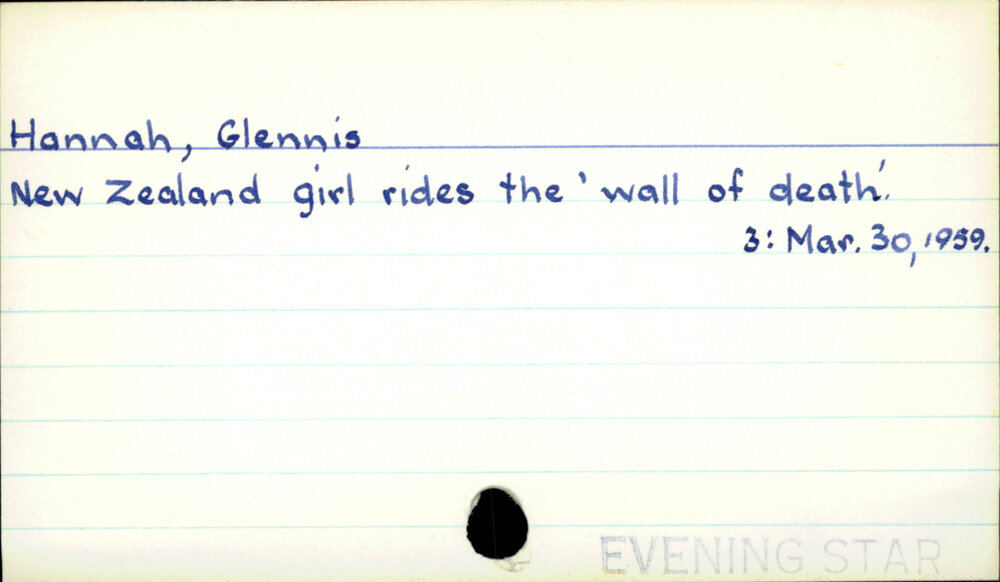 Hannah, Glennis
New Zealand girl rides the 'wall of death'.
3: Mar. 30, 1959.
EVENING STAR